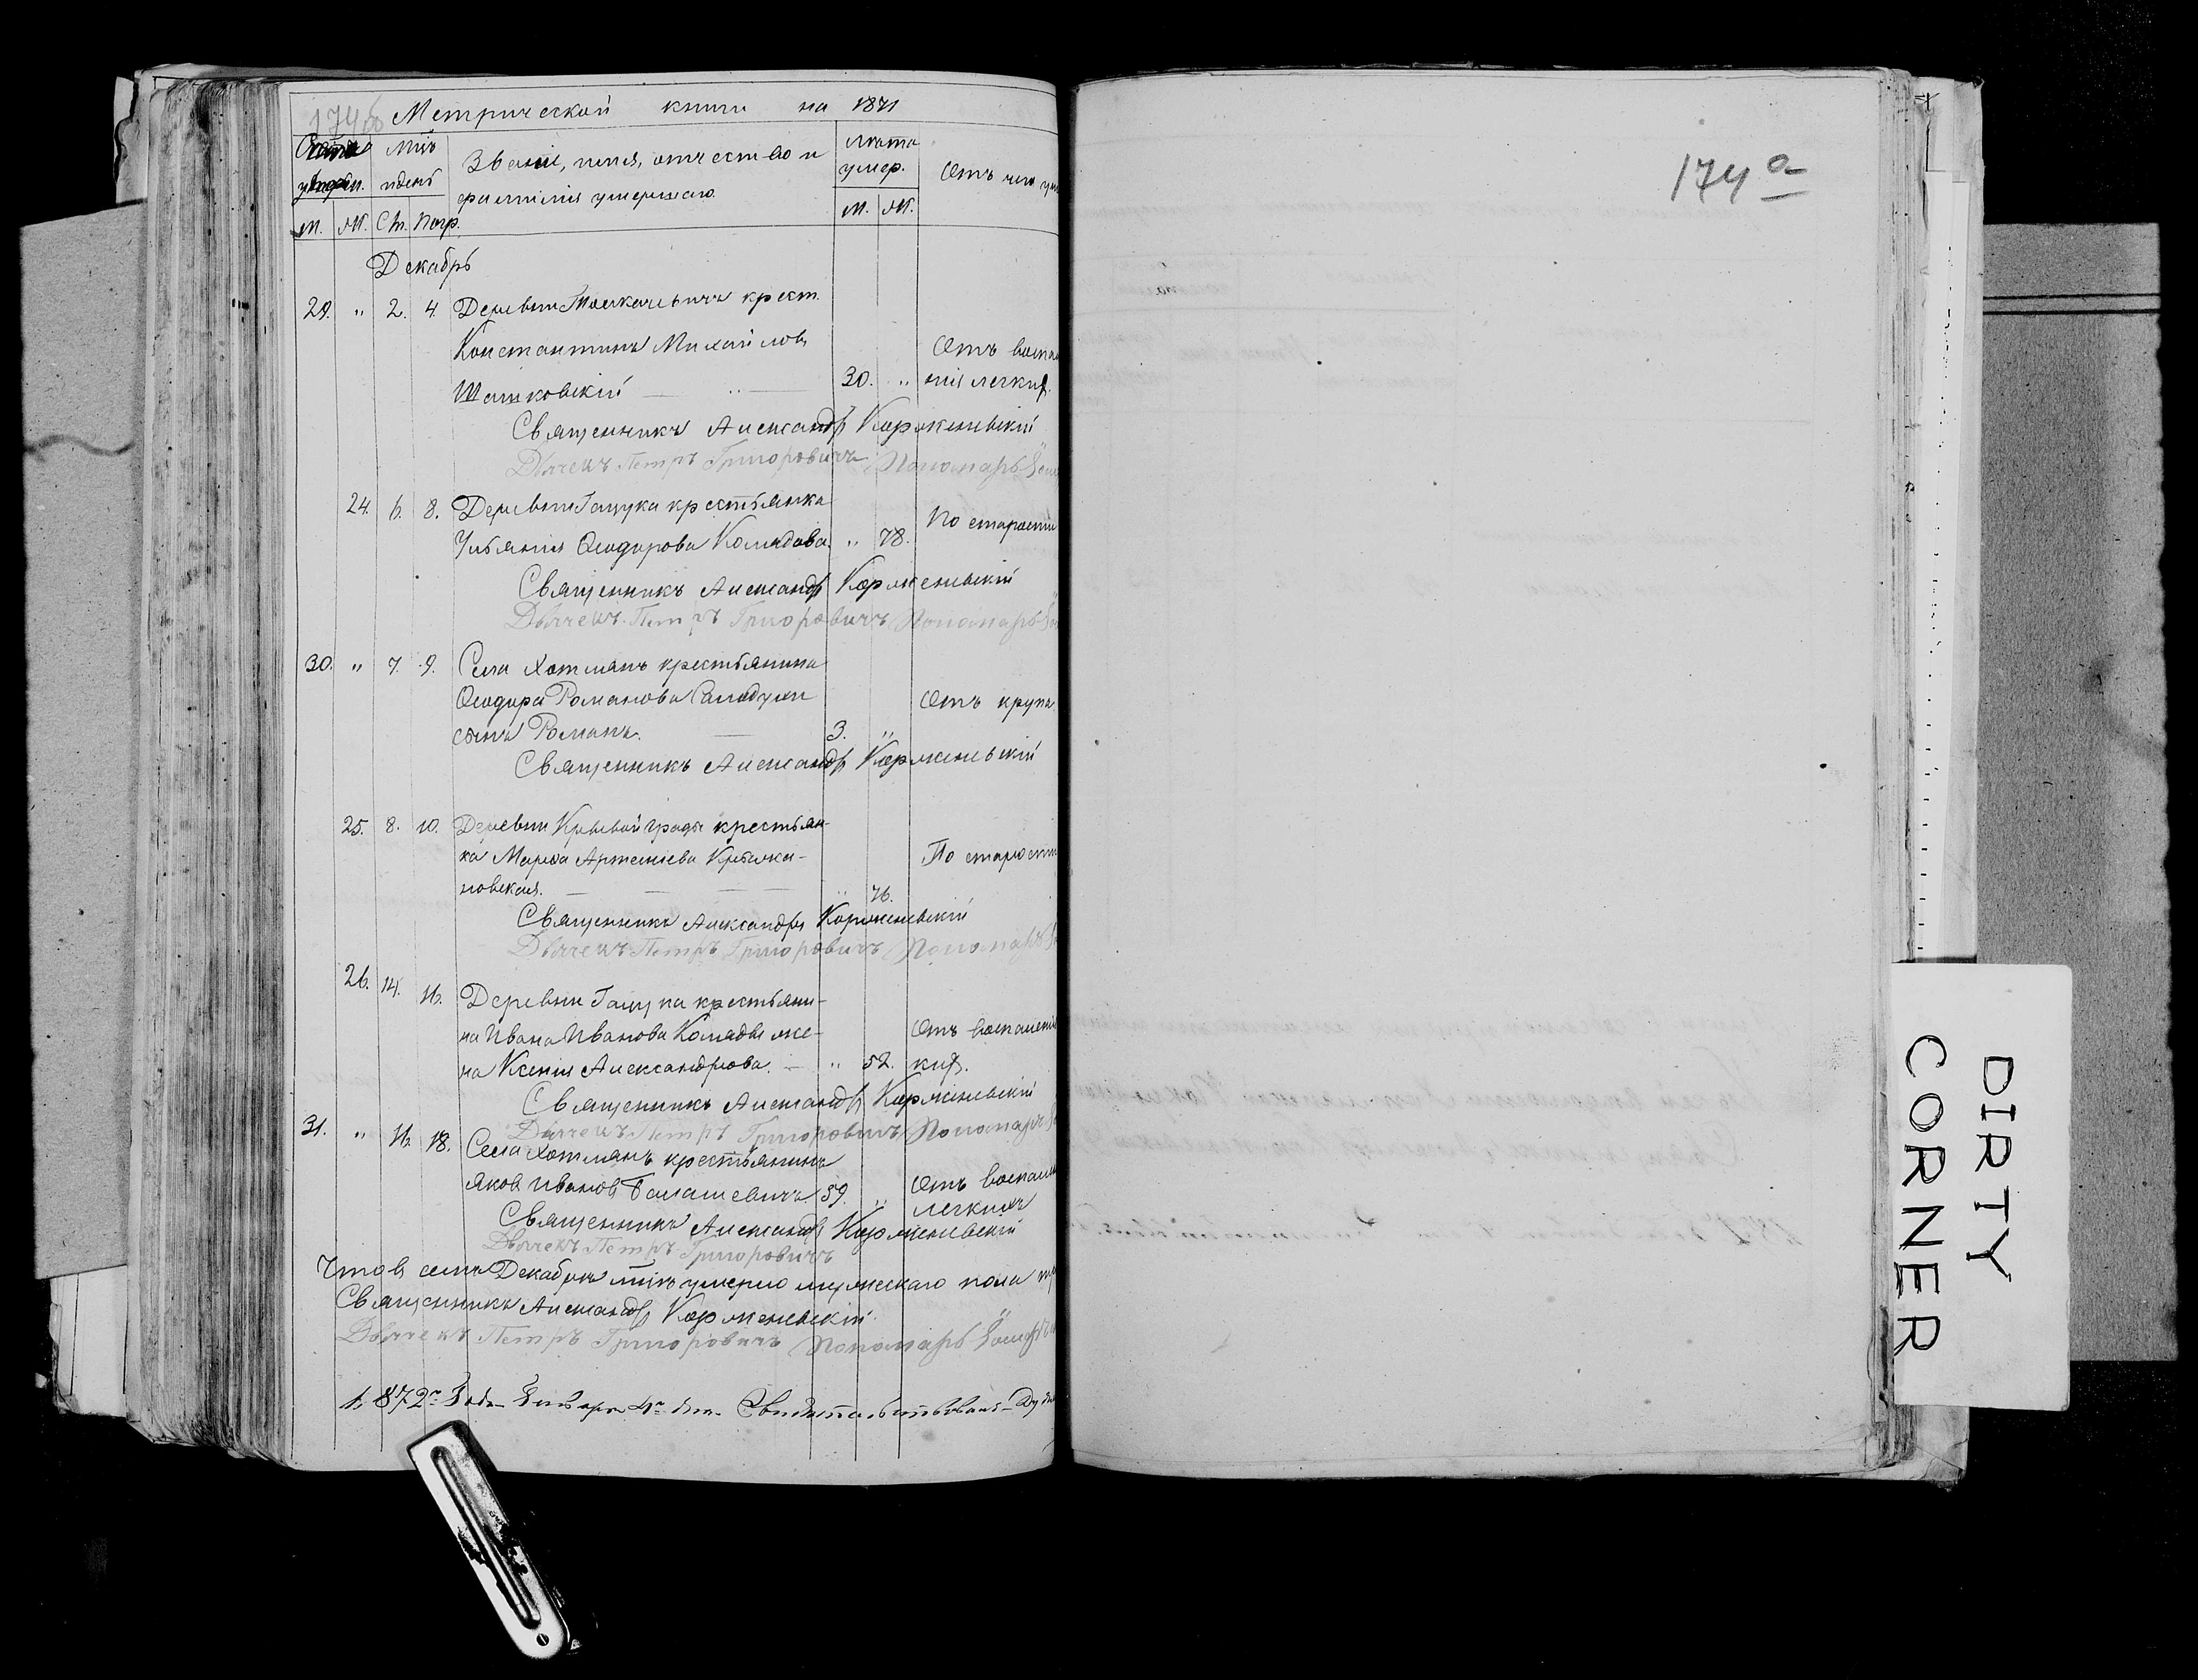 174б
Метрической книги на 1871
Счетъ умерш. Мцъ и день Званіе, имя, отчество и фамилія умершаго. Лѣта умер. Отъ чего
М. Ж. См. Погр. М. Ж.
Декабрь
29. " 2. 4. Деревни крест.
Константинъ Михайловъ Отъ воспа
Шашковскій 30. " нія легких.
Священникъ Александръ Корженевскій
Дьячекъ Петръ Григоровичъ Пономарь
24. 6. 8. Деревни Гацука крестьянка
Ульянія Ѳеодорова Колядова. " 78. По старости
Священникъ Александръ Корженевскій
Дьячекъ Петръ Григоровичъ Пономарь
30. " 7. 9. Села Хотлянъ крестьянина
Ѳеодора Романова Отъ крупа
сынъ Романъ. 3. "
Священникъ Александръ Корженевскій
25. 8. 10. Деревни Кривой гряды крестьян-
ка Марѳа Артеміева
новская. " 76. По старости
Священникъ Александръ Корженевскій
Дьячекъ Петръ Григоровичъ Пономарь
26. 14. 16. Деревни Гацука крестьяни-
на Ивана Иванова Коляды же- Отъ воспаленія
на Ксенія Александрова. " 52. ких.
Священникъ Александръ Корженевскій
Дьячекъ Петръ Григоровичъ Пономарь
31. " 16. 18. Села Хотлянъ крестьянинъ
Яковъ Ивановъ Балашевичъ 59. " Отъ воспале
легкихъ
Священникъ Александръ Корженевскій
Дьячекъ Петръ Григоровичъ
Итого въ семъ Декабрѣ мцѣ умерло мужескаго пола
Священникъ Александръ Корженевскій
Дьячекъ Петръ Григоровичъ Пономарь
1872го Года Января 4го дня Свидѣтельствовалъ
174а
DIRTY
CORNER